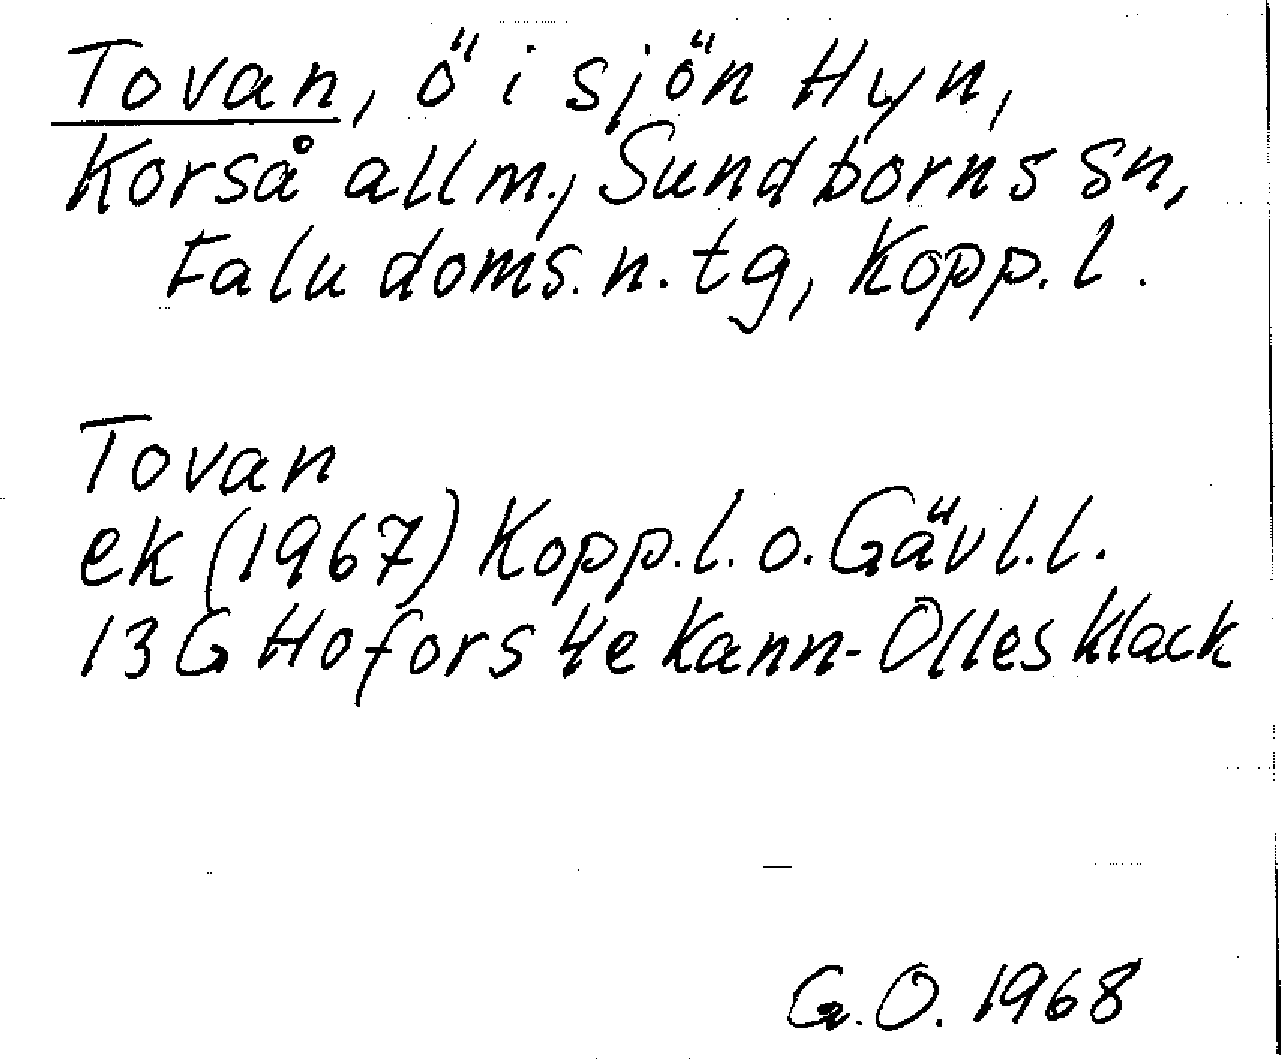 Tovan, ö i sjön Hyn,
Korså allm., Sundborns sn,
Falu doms. n. tg, Kopp. l.
Tovan
ek (1967) Kopp. l. o. Gävl. l.
13G Hofors 4e Kann-Olles klack
G.O. 1968